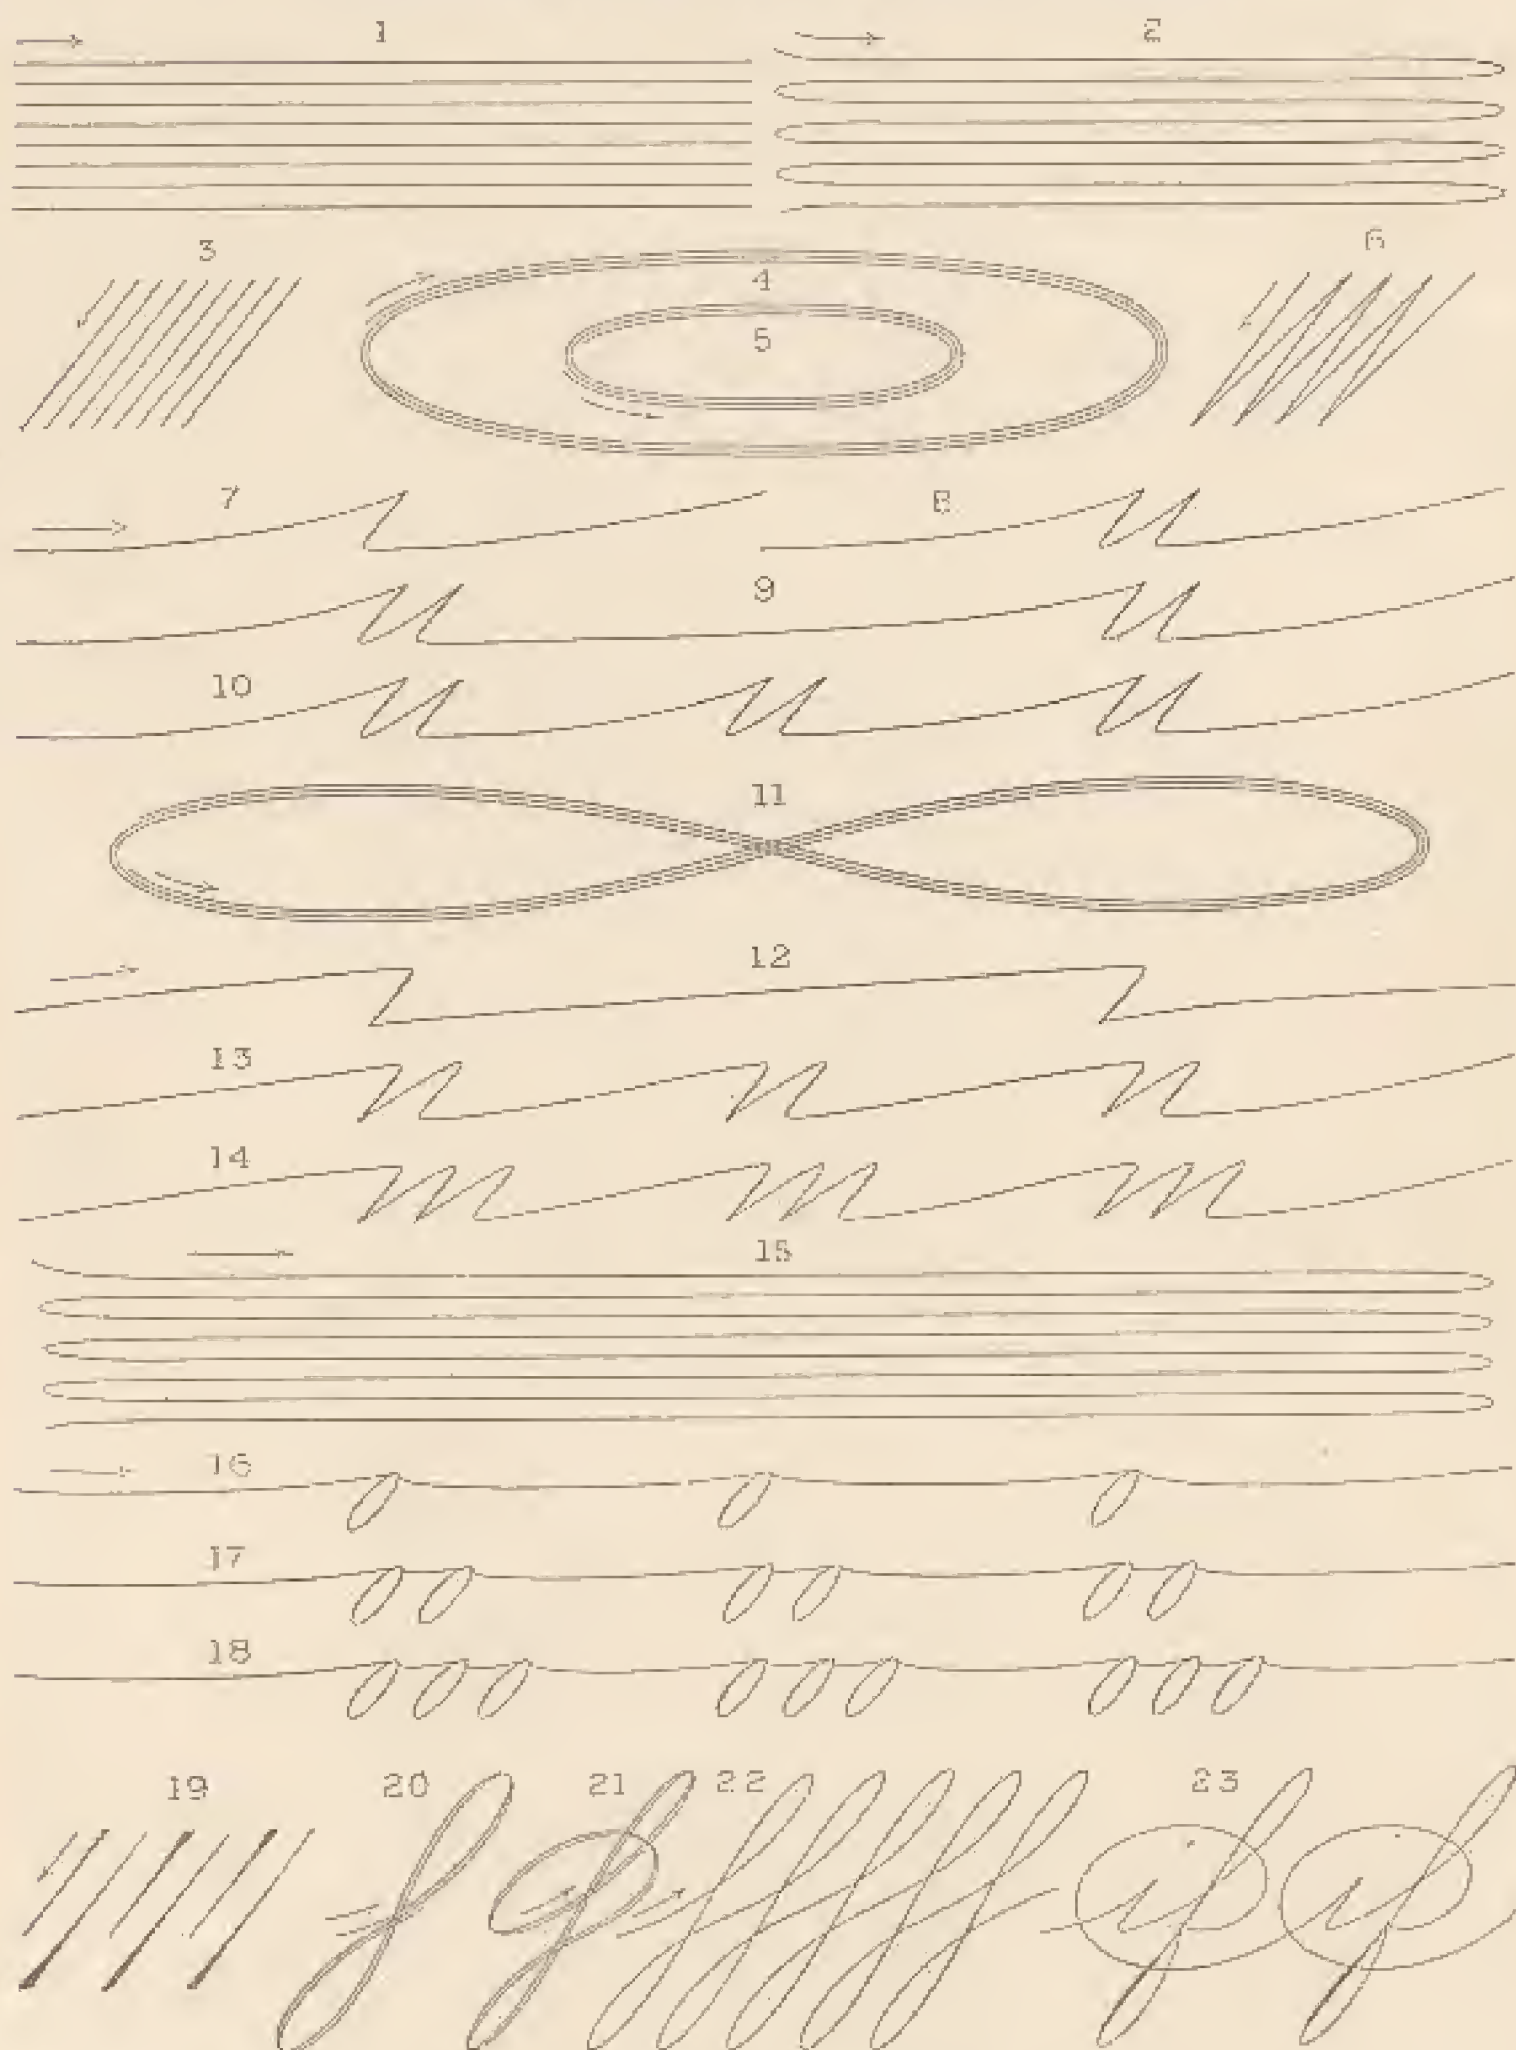 1 2
3 4 6
5
7 8
9
10
11
12
13
14
15
16
17
18
19 20 21 22 23